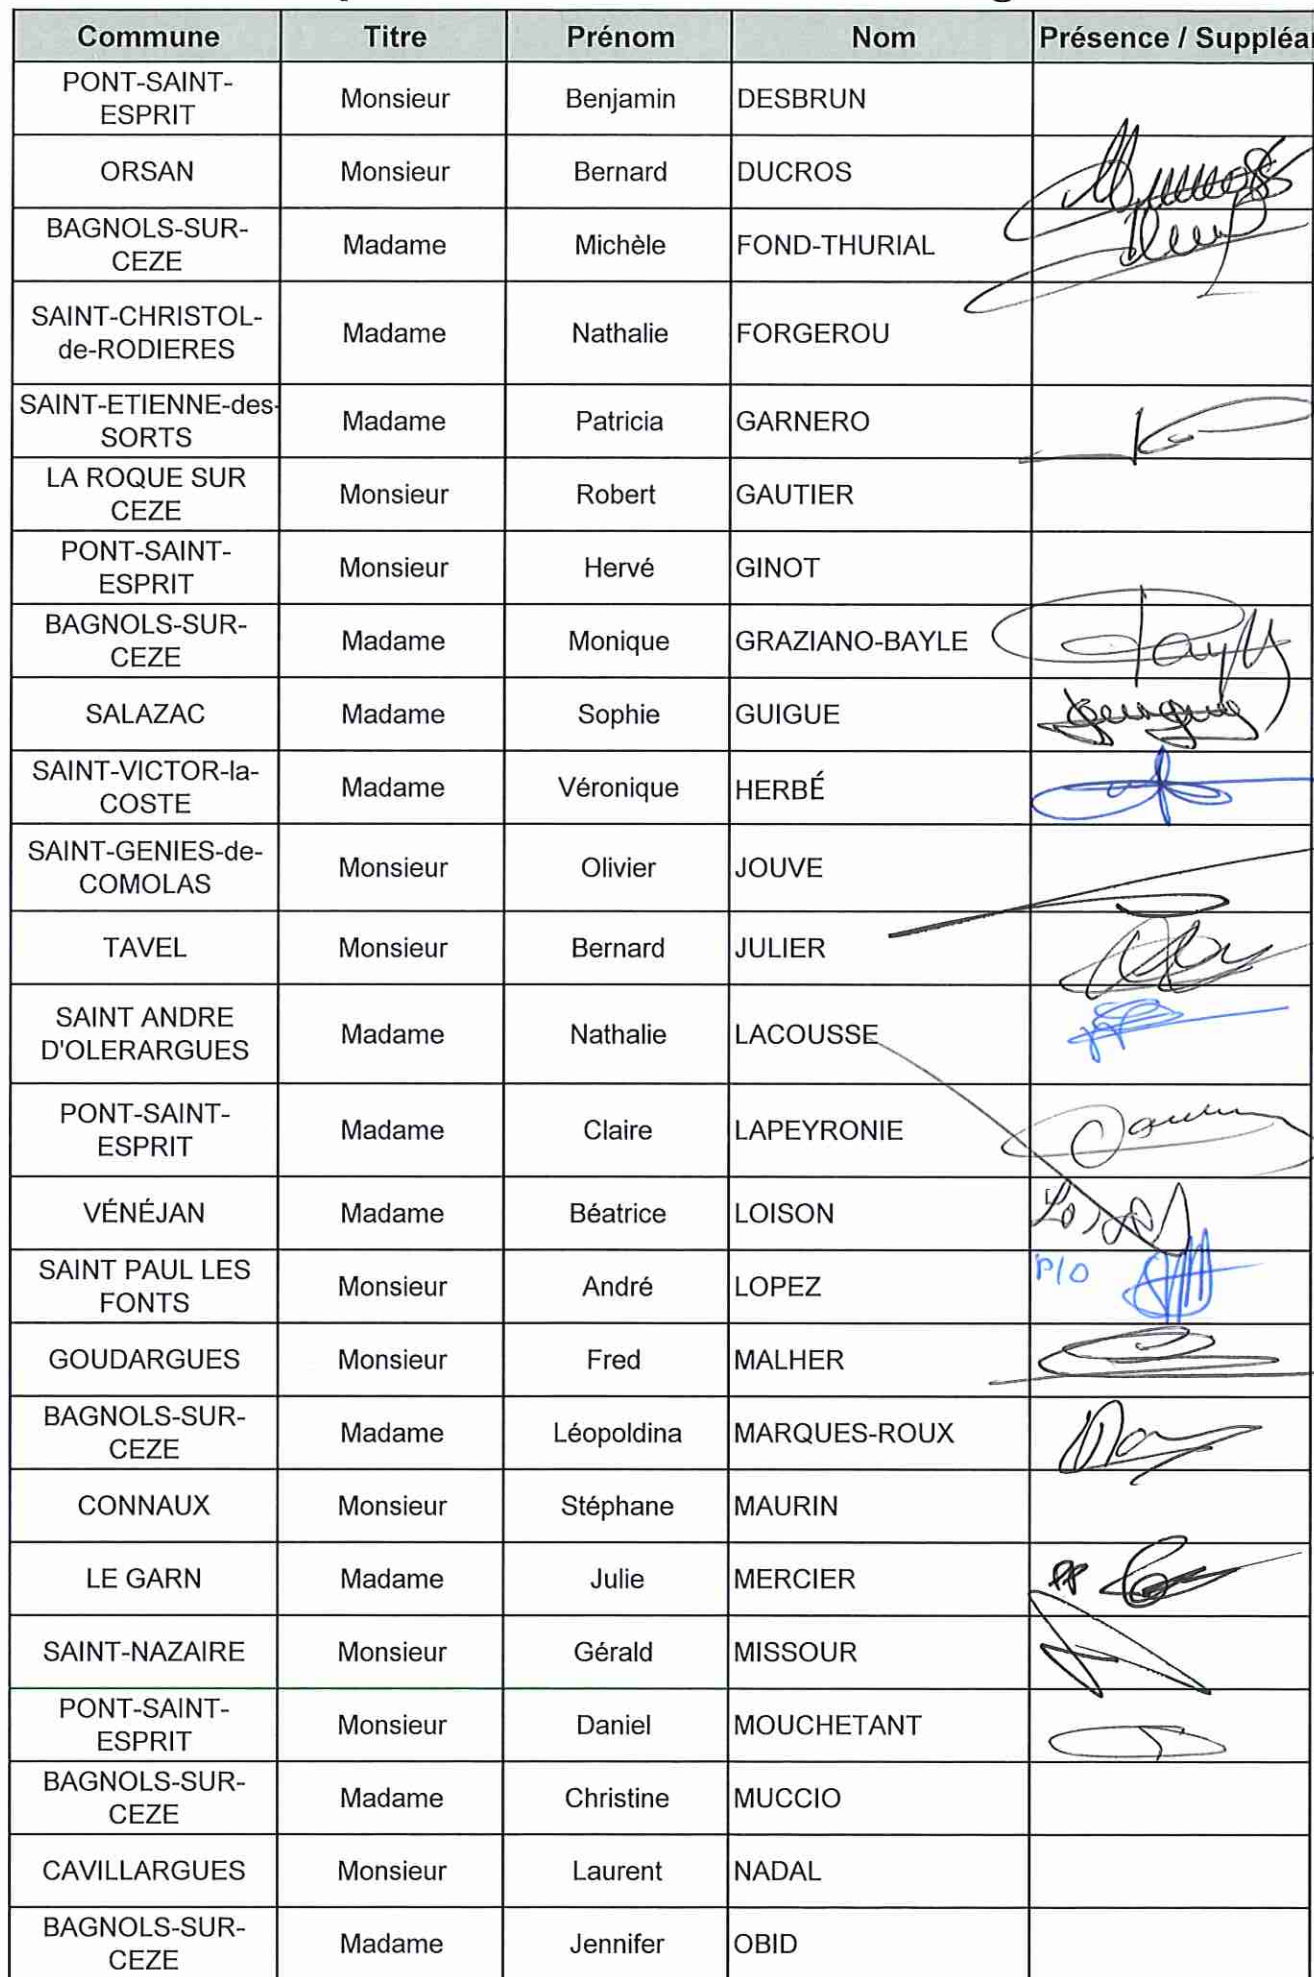 Commune Titre Prénom Nom Présence / Suppléa
PONT-SAINT-
ESPRIT Monsieur Benjamin DESBRUN
ORSAN Monsieur Bernard DUCROS
BAGNOLS-SUR-
CEZE Madame Michèle FOND-THURIAL
SAINT-CHRISTOL-
de-RODIERES Madame Nathalie FORGEROU
SAINT-ETIENNE-des-
SORTS Madame Patricia GARNERO
LA ROQUE SUR
CEZE Monsieur Robert GAUTIER
PONT-SAINT-
ESPRIT Monsieur Hervé GINOT
BAGNOLS-SUR-
CEZE Madame Monique GRAZIANO-BAYLE
SALAZAC Madame Sophie GUIGUE
SAINT-VICTOR-la-
COSTE Madame Véronique HERBÉ
SAINT-GENIES-de-
COMOLAS Monsieur Olivier JOUVE
TAVEL Monsieur Bernard JULIER
SAINT ANDRE
D'OLERARGUES Madame Nathalie LACOUSSE
PONT-SAINT-
ESPRIT Madame Claire LAPEYRONIE
VÉNÉJAN Madame Béatrice LOISON
SAINT PAUL LES
FONTS Monsieur André LOPEZ P/O
GOUDARGUES Monsieur Fred MALHER
BAGNOLS-SUR-
CEZE Madame Léopoldina MARQUES-ROUX
CONNAUX Monsieur Stéphane MAURIN
LE GARN Madame Julie MERCIER
SAINT-NAZAIRE Monsieur Gérald MISSOUR
PONT-SAINT-
ESPRIT Monsieur Daniel MOUCHETANT
BAGNOLS-SUR-
CEZE Madame Christine MUCCIO
CAVILLARGUES Monsieur Laurent NADAL
BAGNOLS-SUR-
CEZE Madame Jennifer OBID